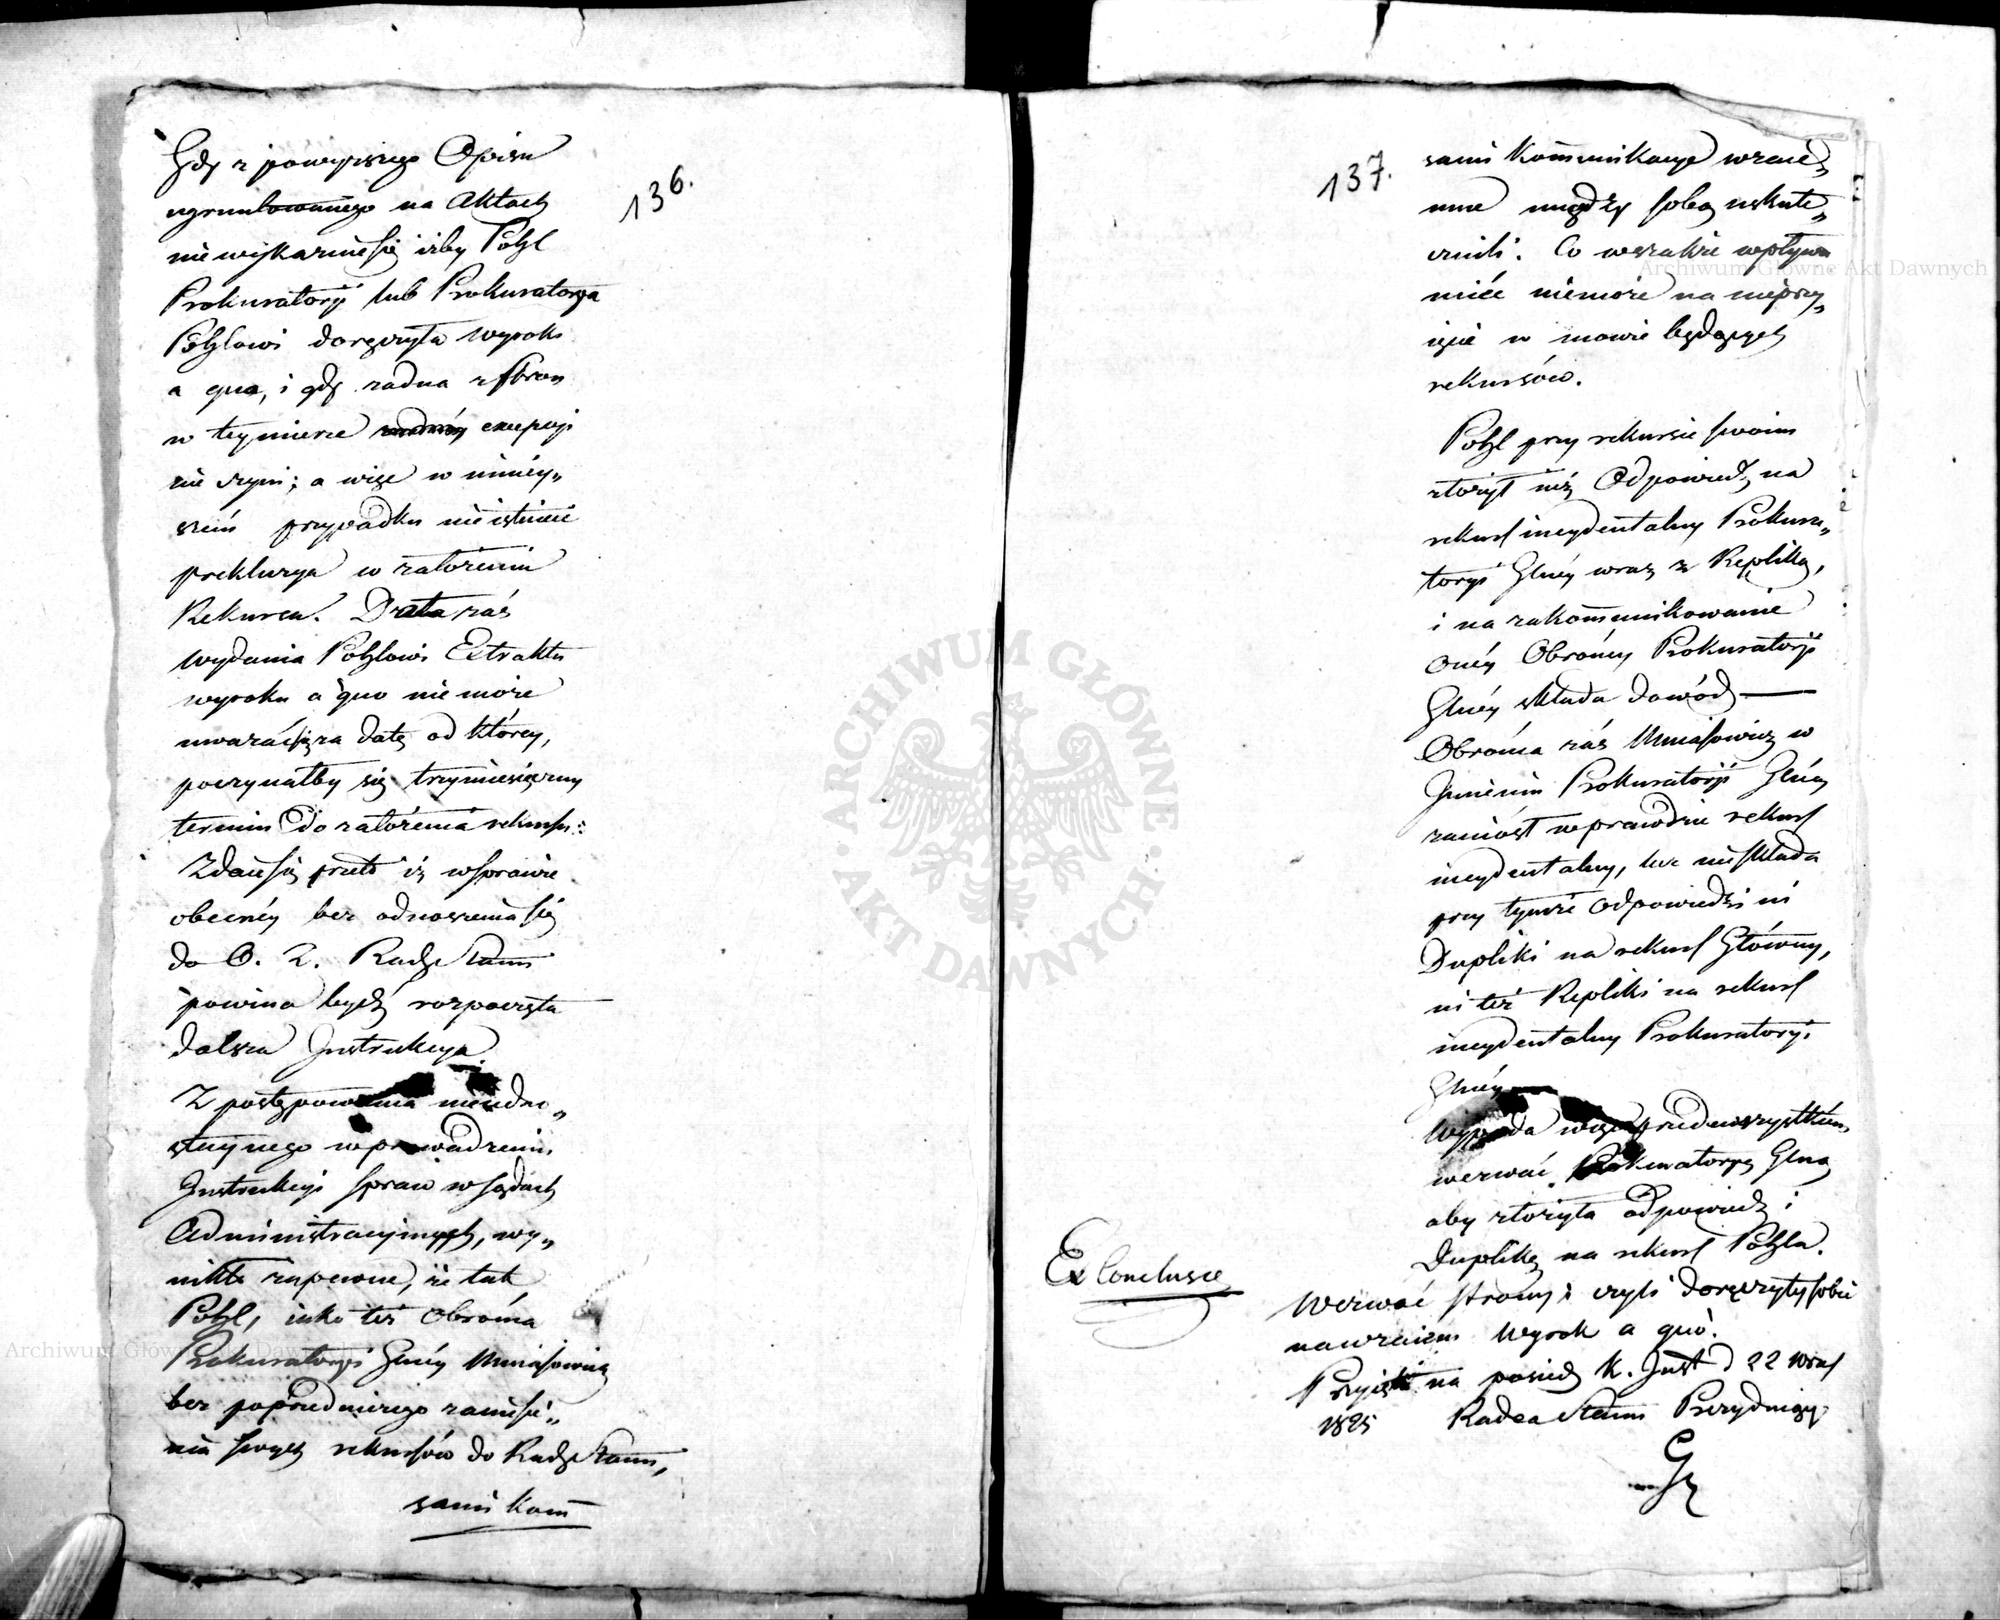 136.
Gdy z powyższego Opisu
ugruntowanego na Aktach
nie wykazuie się iżby Pohl
Prokuratoryi lub Prokuratorya
Pohlowi doręczyła wyrok
a quo, i gdy żadna z stron
w tey mierze excepcyi
nie czyni; a więc w niniey„
szém przypadku nie istnieie
prekluzya w założeniu
Rekursu. Data zaś
wydania Pohlowi Extraktu
wyroku a quo nie może
uważać się za datę od któréy,
poczynałby się trzymiesięczny
termin do założenia rekursu:
Zdaie się przeto iż w sprawie
obecnéy bez odnoszenia się
do O. Z. Rady Stanu
powinna bydź rozpoczęta
dalsza Instrukcya
Z postępowania nieudno„
stuynego w prowadzeniu
Instrukcyi spraw w sądach
Administracyinych, wy„
nikło zapewne, że tak
Pohl, iako też Obrońca
Prokuratoryi Głnéy
bez poprzedniczego zaniesie„
nia swych rekursów do Rady Stanu,
sami kom̄
137.
sami kom̄unikacye wzaie„
mne między sobą uskute„
cznili. Co wszakże wpływu
mieć nie może na nieprzy„
ięcie w mowie będących
rekursów.
Pohl przy rekursie swoim
złożył iuż Odpowiedź na
rekurs incydentalny Prokura„
toryi Głnéy wraz z Repliką,
i na zakom̄unikowanie
onéy Obrońcy Prokuratoryi
Głnéy składa dowód —
Obrońca zaś w
Imieniu Prokuratoryi Głnéy
zaniósł wprawdzie rekurs
incydentalny, lecz nie składa
przy tymże odpowiedzi ni
Dupliki na rekurs Główny,
ni też Repliki na rekurs
incydentalny Prokuratoryi
Głnéy —
Wypada więc przedewszystkiem
wezwać Prokuratoryę Głną
aby złożyła odpowiedź i
Duplikę na rekurs Pohla.
Ex Conclusie
Wezwać strony czyli doręczyły sobie
nawzaiem wyrok a quo.
Przyięte na posiedz K. Inst d 22 Wrzes
1825 Radca Stanu Prezyduiący